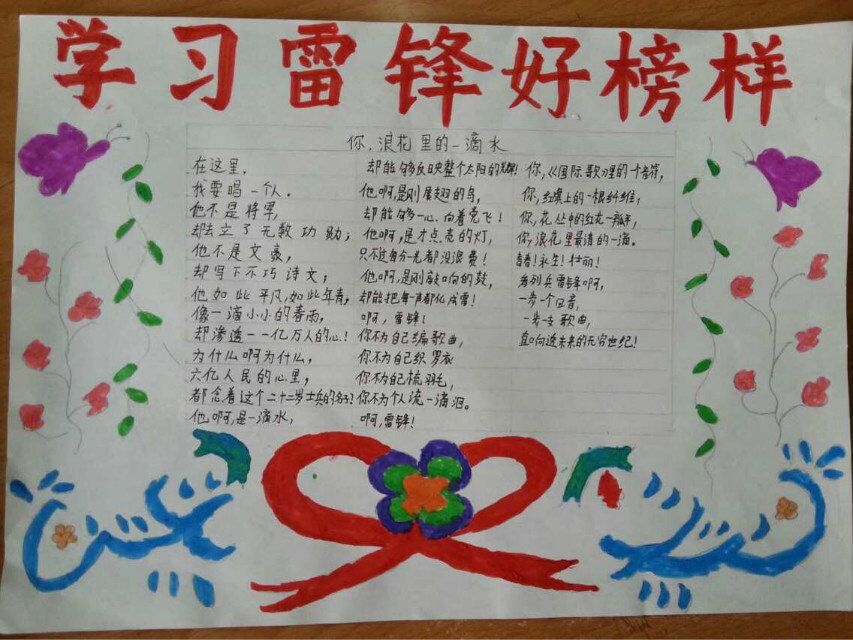 学习雷锋好榜样
你,浪花里的一滴水
在这里,
我要唱一个人.
他不是将军,
却立了无数功勋;
他不是文豪,
却写下不巧诗文;
他如此平凡,如此年青,
像一滴小小的春雨,
却渗透一一亿万人的心!
为什么啊为什么,
六亿人民的心里,
都念着这个二十二岁士兵的名字!
他啊,是一滴水,
却能够反映整个太阳的光辉!
他啊,是刚展翅的鸟,
却能够一心向着党飞!
他啊,是才点亮的灯,
只不过每分光都没浪费!
他啊,是刚敲响的鼓,
却能把每声都化成雷!
啊,雷锋!
你不为自己编歌曲,
你不为自己织罗衣
你不为自己梳羽毛,
你不为个人流一滴泪。
啊,雷锋!
你,从国际歌里的一个音符,
你,红旗上的一根纤维,
你,花丛中的红花一瓣,
你,浪花里最清的一滴。
青春!永生!壮丽!
看列兵雷锋啊,
一步一个回音,
一步一支歌曲,
直响近未来的无穷世纪!